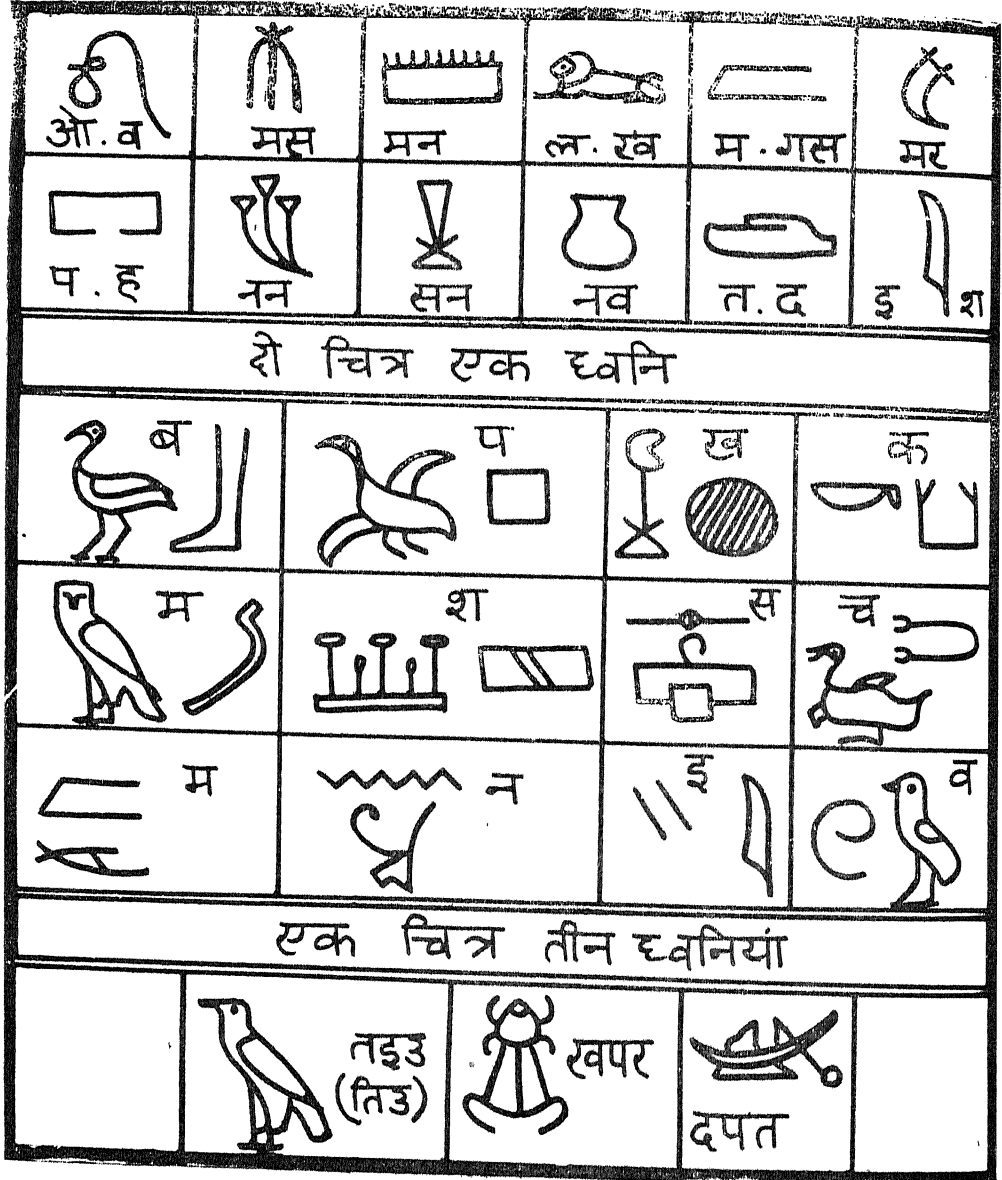 ओ. व मस मन ल. रव म . गस मर
प . ह नन सन नव त. द इ श
दो चित्र एक ध्वनि
ब प ख क
म श स च
म न इ व
एक चित्र तीन ध्वनियां
तइउ
(तिउ)
खपर
दपत